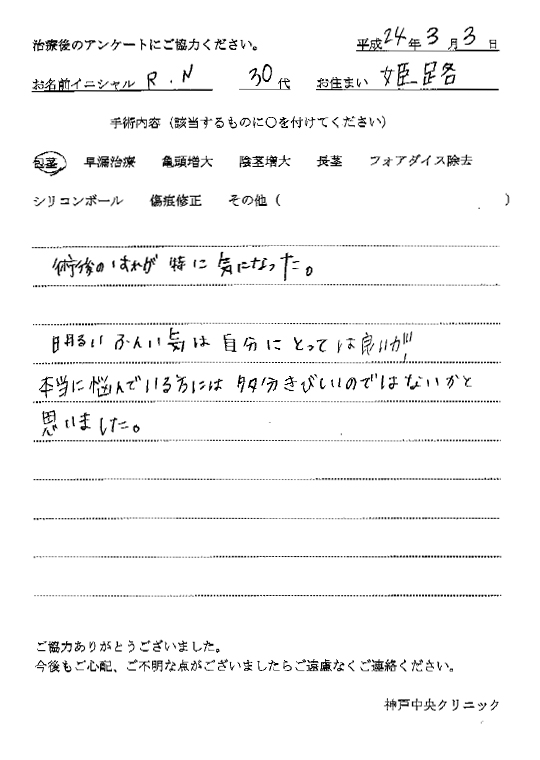 治療後のアンケートにご協力ください。 平成24年3月3日
お名前イニシャル R.N 30代 お住まい 姫路
手術内容（該当するものに○を付けてください）
包茎 早漏治療 亀頭増大 陰茎増大 長茎 フォアダイス除去
シリコンボール 傷痕修正 その他（ ）
術後のはれが特に気になった。
明るいふんい気は自分にとっては良いが、
本当に悩んでいる方には多分きびしいのではないかと
思いました。
ご協力ありがとうございました。
今後もご心配、ご不明な点がございましたらご遠慮なくご連絡ください。
神戸中央クリニック